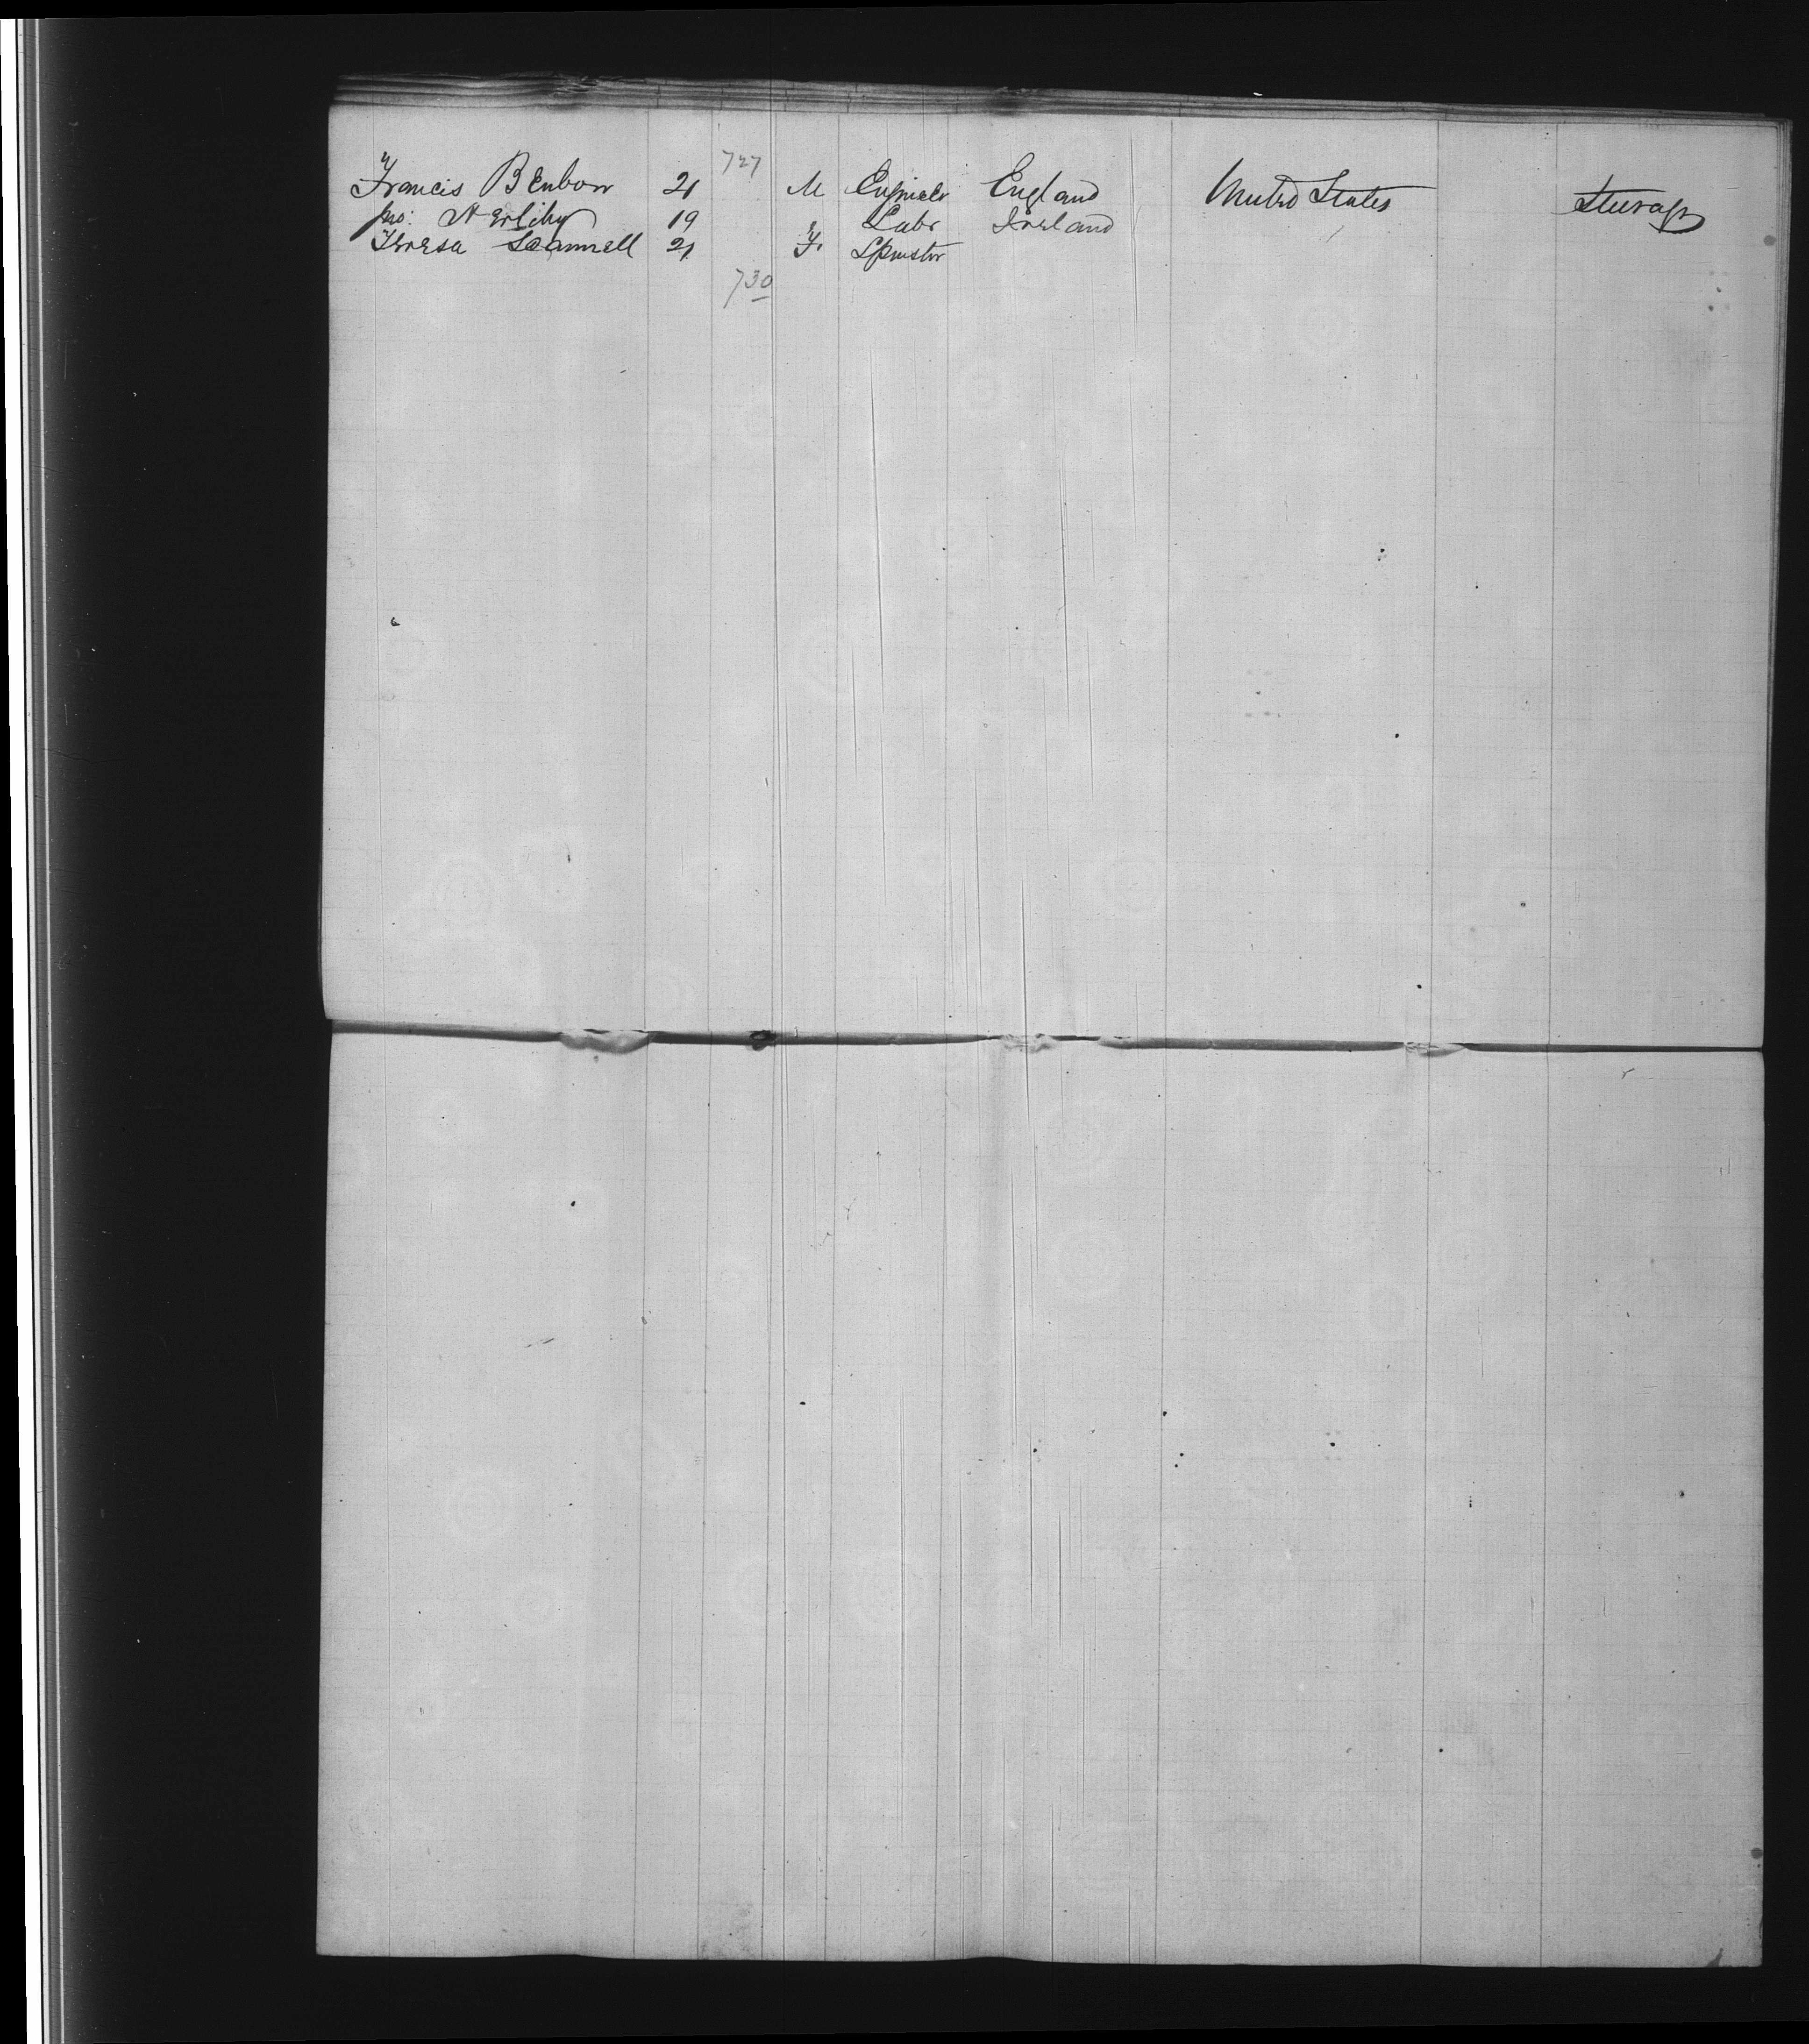 727
Francis Benbow 21 M Engineer England United States Steerage
Jno: Herlihy 19 Labr Ireland
Teresa Scannell 21 F. Spinster
730